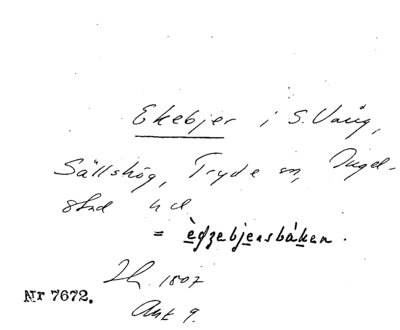 Ekebjer i S. Vång,
Sällshög, Tryde sn, Ingel-
stad hd
= ègzebjensbåken.
Lh. 1807
Akt 9.
Nr 7672.